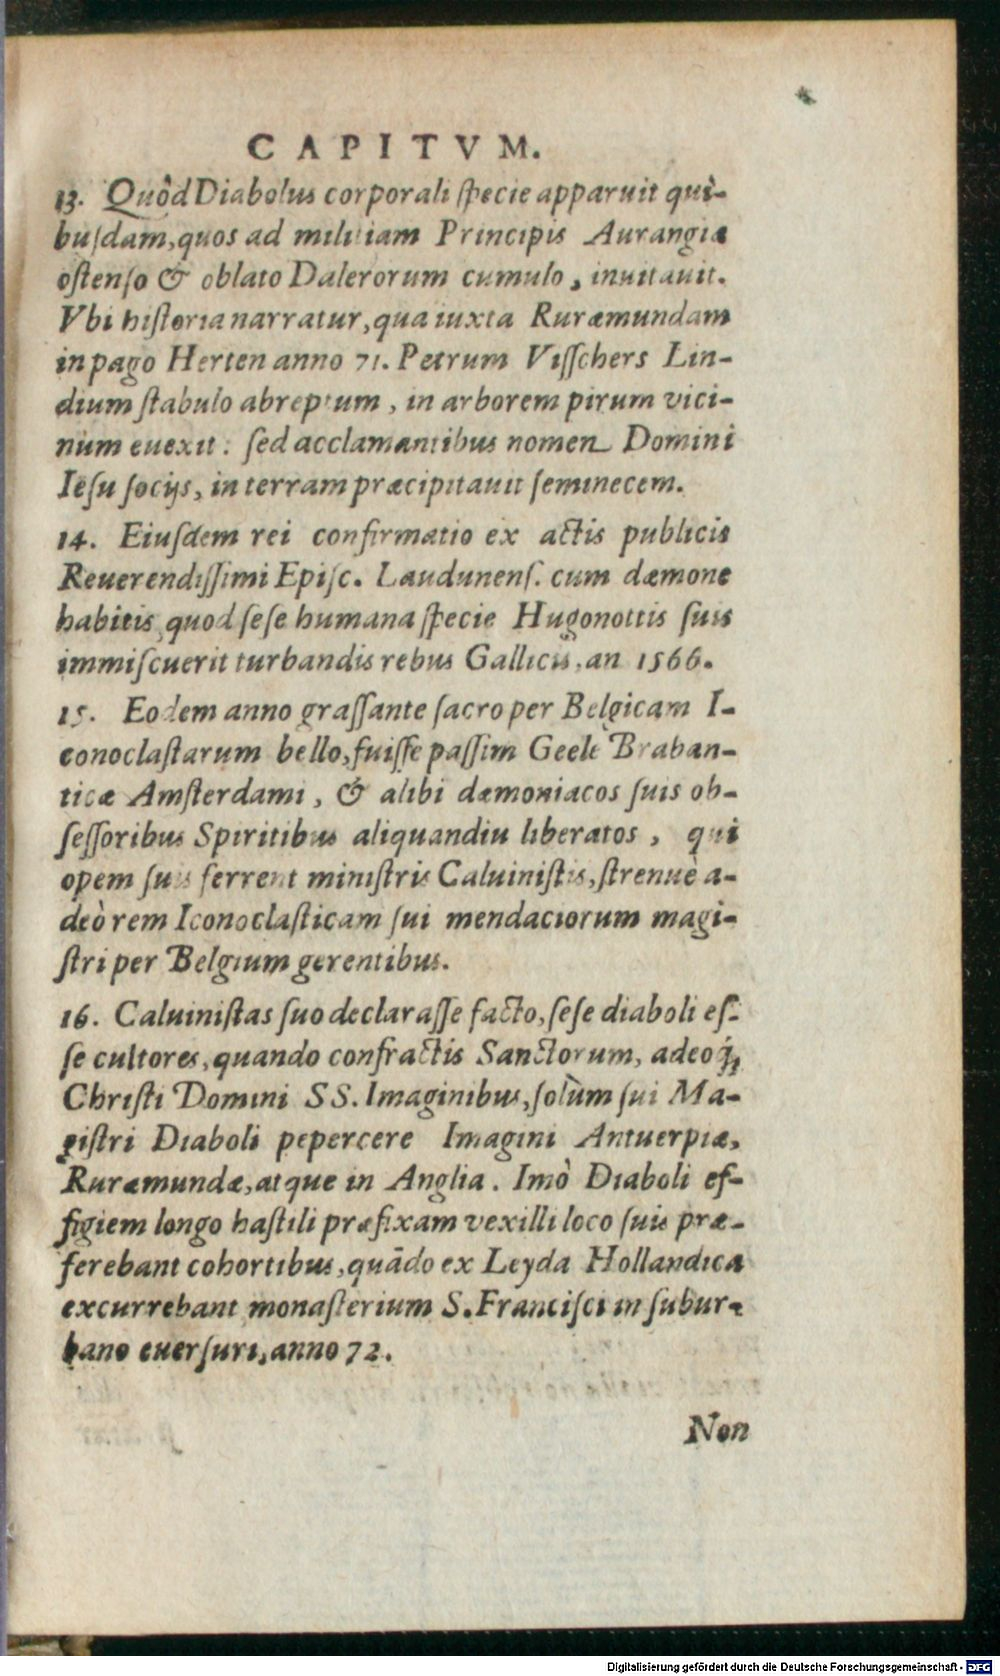 CAPITVM.
13. Quòd Diabolus corporali specie apparuit qui-
busdam, quos ad militiam Principis Aurangiæ
ostenso & oblato Dalerorum cumulo, inuitauit.
Vbi historia narratur, qua iuxta Ruræmundam
in pago Herten anno 71. Petrum Visschers Lin-
dium stabulo abreptum, in arborem pirum vici-
num euexit: sed acclamantibus nomen Domini
Iesu socijs, in terram præcipitauit seminecem.
14. Eiusdem rei confirmatio ex actis publicis
Reuerendissimi Episc. Laudunens. cum dæmone
habitis, quod sese humana specie Hugonottis suis
immiscuerit turbandis rebus Gallicis, an 1566.
15. Eodem anno grassante sacro per Belgicam I-
conoclastarum bello, fuisse passim Geele Braban-
ticæ Amsterdami, & alibi dæmoniacos suis ob-
sessoribus Spiritibus aliquandiu liberatos, qui
opem suis ferrent ministris Caluinistis, strenuè a-
deò rem Iconoclasticam sui mendaciorum magi-
stri per Belgium gerentibus.
16. Caluinistas suo declarasse facto, sese diaboli es-
se cultores, quando confractis Sanctorum, adeoq́;
Christi Domini SS. Imaginibus, solùm sui Ma-
gistri Diaboli pepercere Imagini Antuerpiæ,
Ruræmundæ, atque in Anglia. Imò Diaboli ef-
figiem longo hastili præfixam vexilli loco suis præ-
ferebant cohortibus, quādo ex Leyda Hollandica
excurrebant monasterium S. Francisci in subur-
bano euersuri, anno 72.
Non
Digitalisierung gefördert durch die Deutsche Forschungsgemeinschaft - DFG